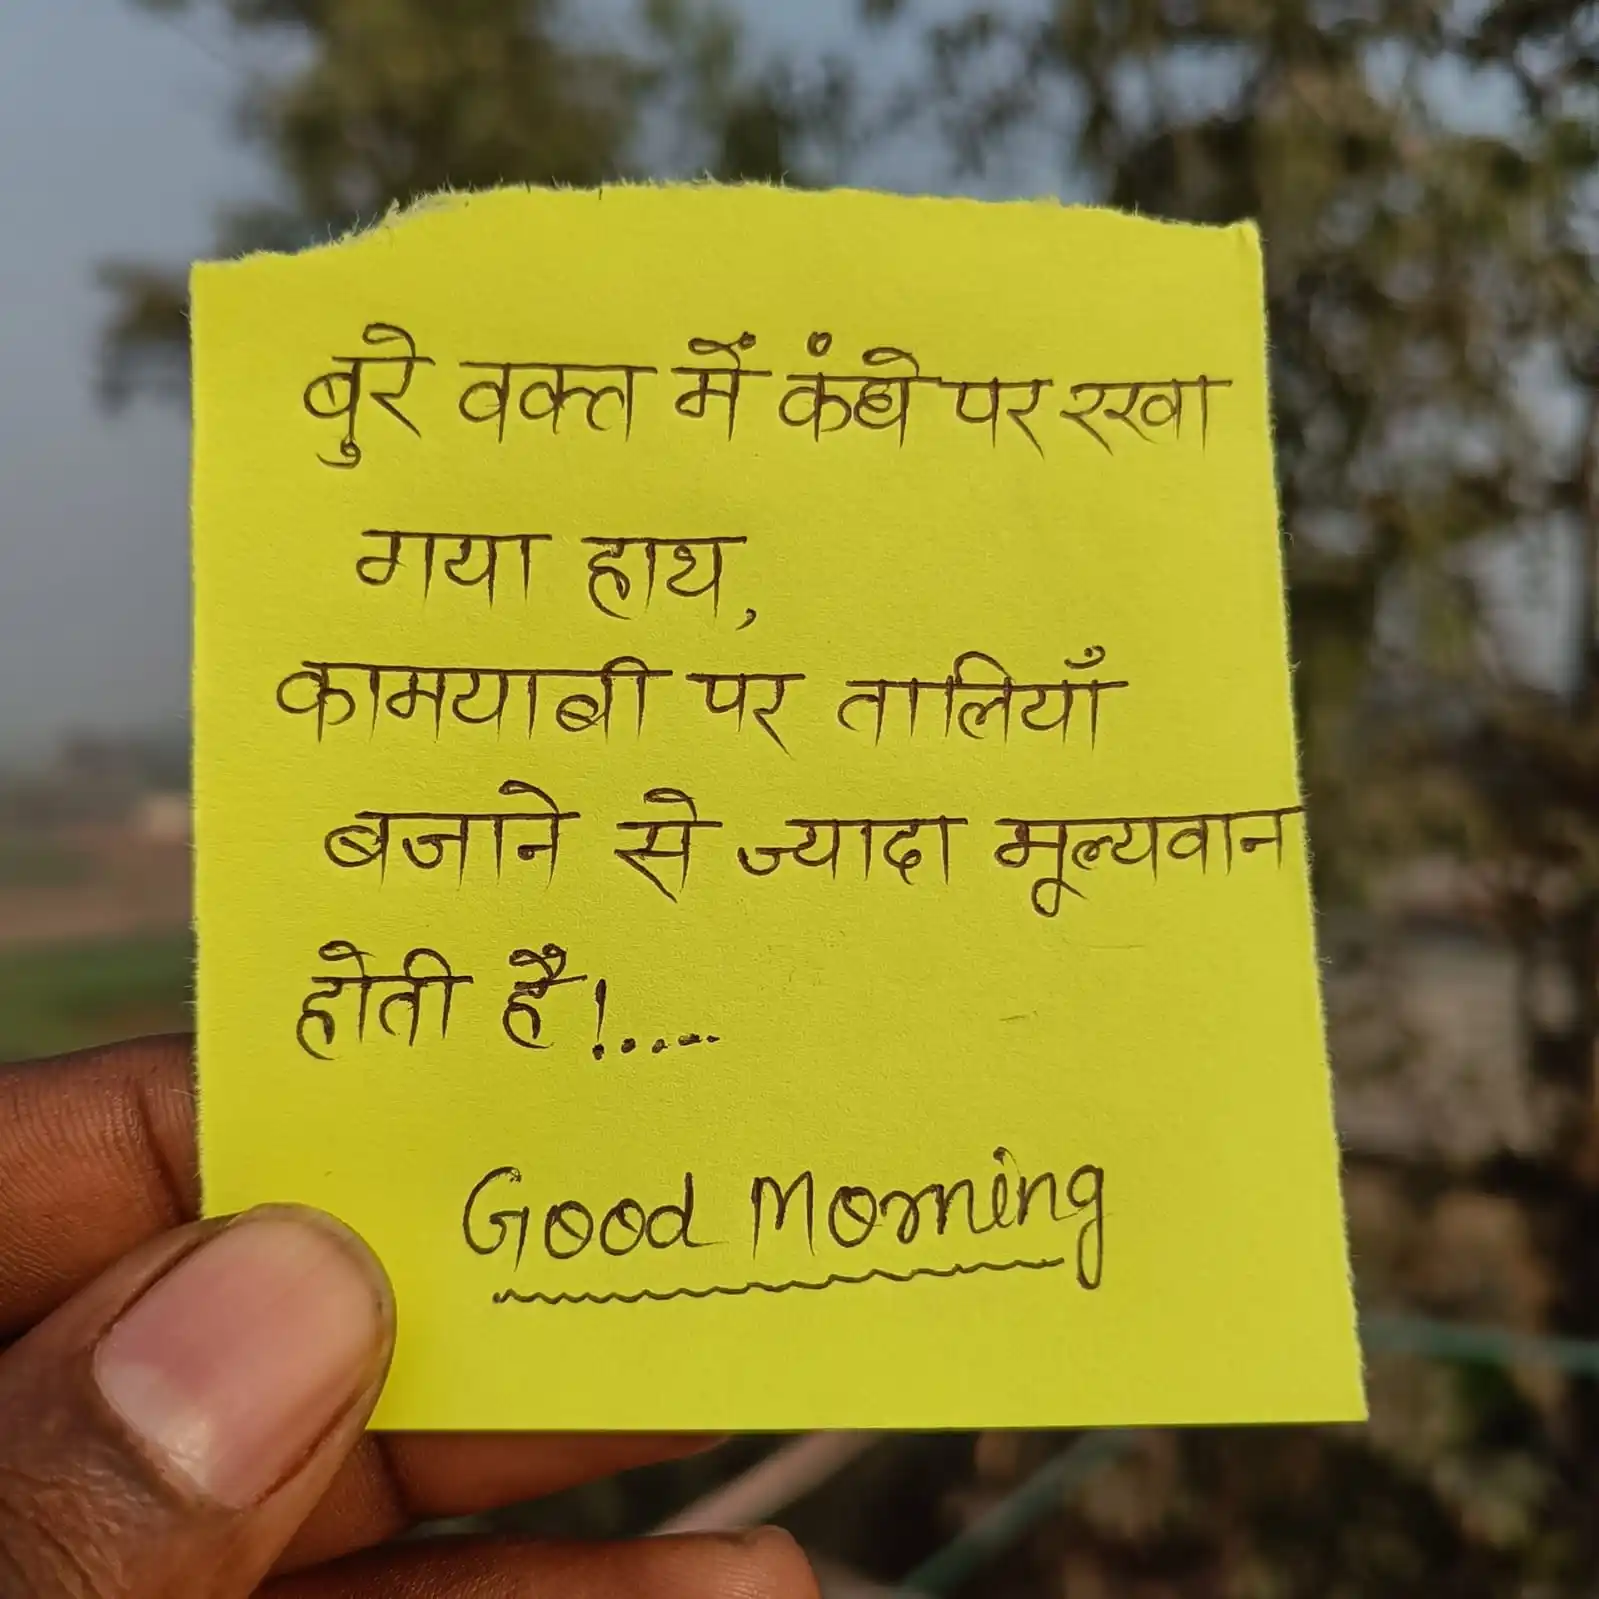 बुरे वक्त में कंधे पर रखा
गया हाथ,
कामयाबी पर तालियाँ
बजाने से ज्यादा मूल्यवान
होती है!....
Good Morning